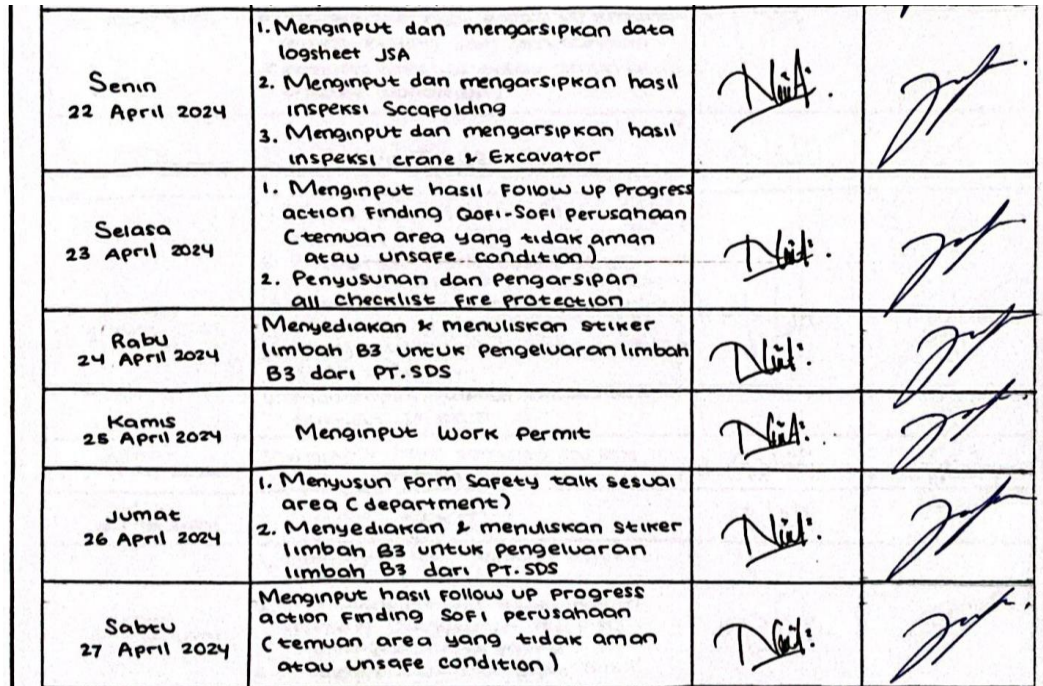 Senin
22 April 2024
1. Menginput dan mengarsipkan data
logsheet JSA
2. Menginput dan mengarsipkan hasil
inspeksi Sccafolding
3. Menginput dan mengarsipkan hasil
inspeksi crane & Excavator
Selasa
23 April 2024
1. Menginput hasil Follow up Progress
action Finding QoFi-SoFi perusahaan
(temuan area yang tidak aman
atau unsafe condition)
2. Penyusunan dan pengarsipan
all checklist fire protection
Rabu
24 April 2024
Menyediakan & menuliskan stiker
limbah B3 untuk pengeluaran limbah
B3 dari PT. SDS
Kamis
25 April 2024
Menginput work permit
Jumat
26 April 2024
1. Menyusun form Safety talk sesuai
area (department)
2. Menyediakan & menuliskan stiker
limbah B3 untuk pengeluaran
limbah B3 dari PT. SDS
Sabtu
27 April 2024
Menginput hasil follow up progress
action Finding SoFi perusahaan
(temuan area yang tidak aman
atau unsafe condition)